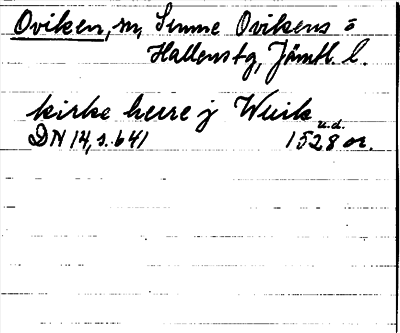 Oviken, sn, Sunne Ovikens o
Hallens tg, Jämtl. l.
kirke herre j Wuik
DN 14, s. 641 u.d. 1528 or.